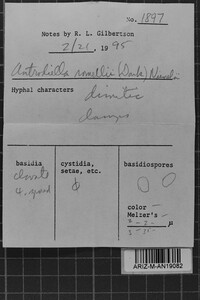 No. 1897
Notes by R. L. Gilbertson
2/21, 1995
Antrodiella romellii (Donk) Niemelä
Hyphal characters dimitic
clamps
basidia cystidia, basidiospores
setae, etc.
clavate
4
color -
Melzer's -
µ
ARIZ-M-AN19082